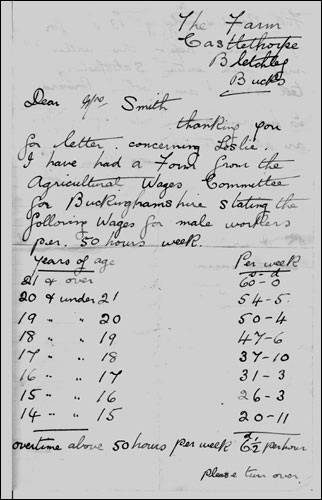 The Farm
Castlethorpe
Bletchley
Bucks
Dear Mrs Smith
thanking you
for letter. concerning Leslie.
I have had a Form from the
Agricultural Wages Committee
for Buckinghamshire stating the
folloring Wages for male workers
per. 50 hours week.
Years of age Per week
s - d
21 & over 60-0
20 & under 21 54-5
19 " " 20 50-4
18 " " 19 47-6
17 " " 18 37-10
16 " " 17 31-3
15 " " 16 26-3
14 " " 15 20-11
overtime above 50 hours per week 6½ per hour
please turn over.